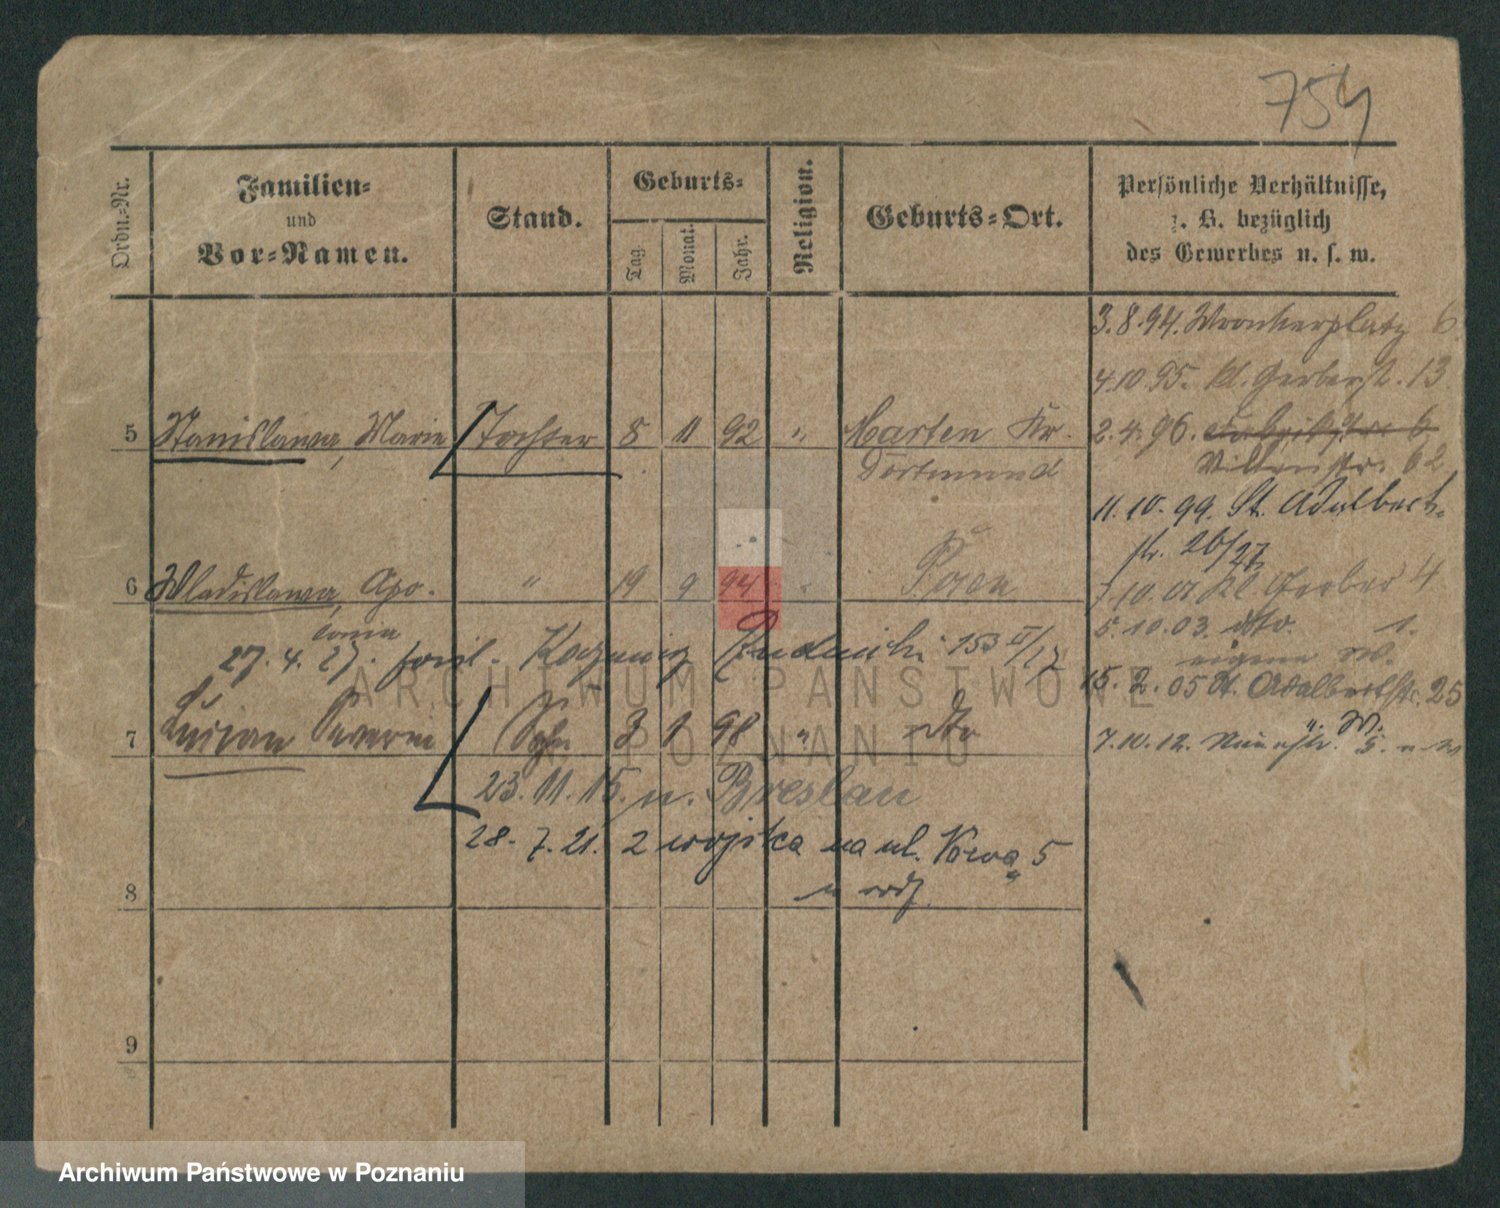 754
Ordn.-Nr.
Familien-
und
Vor-Namen.
Stand.
Geburts-
Tag.
Monat.
Jahr.
Religion.
Geburts-Ort.
Persönliche Verhältnisse,
z. B. bezüglich
des Gewerbes u. s. w.
3.8.94. Wronkerplatz 6
4.10.95. kl. Gerberst. 13
5 Stanislawa, Marie Tochter 8 11 92 " Marten Kr.
Dortmund
2.4.96. 6
62
11.10.99. St. Adalbert-
str. 26/27
6 Wladislawa, Apo- " 19 9 94 " Posen
lonia
7.10.01 Kl. Gerber 4
5.10.03. dto. 1.
eigene W.
27. 4. 27. Rudnicki 153 II/17
15. 2. 05 St. Adalbertstr. 25
7 Lucian Severin Sohn 3 1 98 " dto
7.10.12. 5.
23. 11. 15. n. Breslau
28. 7. 21. z wojska na ul. 5
8
9
ARCHIWUM PAŃSTWOWE
W POZNANIU
Archiwum Państwowe w Poznaniu